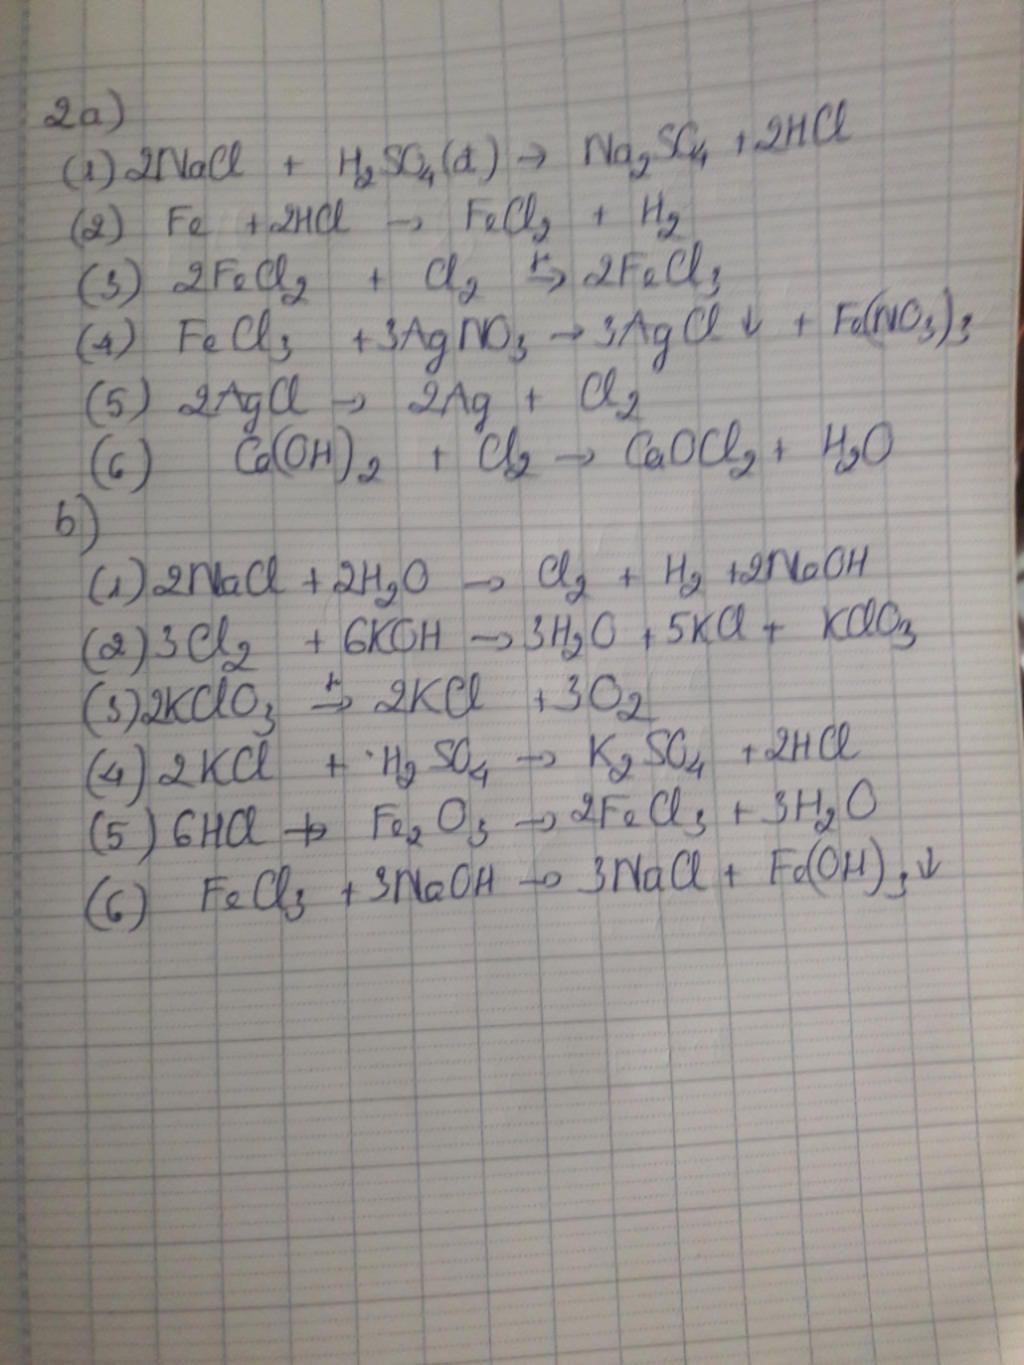 2a)
(1) 2NaCl + H₂SO₄(đ) → Na₂SO₄ + 2HCl
(2) Fe + 2HCl → FeCl₂ + H₂
(3) 2FeCl₂ + Cl₂ → 2FeCl₃
(4) FeCl₃ + 3AgNO₃ → 3AgCl ↓ + Fe(NO₃)₃
(5) 2AgCl → 2Ag + Cl₂
(6) Ca(OH)₂ + Cl₂ → CaOCl₂ + H₂O
b)
(1) 2NaCl + 2H₂O → Cl₂ + H₂ + 2NaOH
(2) 3Cl₂ + 6KOH → 3H₂O + 5KCl + KClO₃
(3) 2KClO₃ → 2KCl + 3O₂
(4) 2KCl + H₂SO₄ → K₂SO₄ + 2HCl
(5) 6HCl + Fe₂O₃ → 2FeCl₃ + 3H₂O
(6) FeCl₃ + 3NaOH → 3NaCl + Fe(OH)₃ ↓